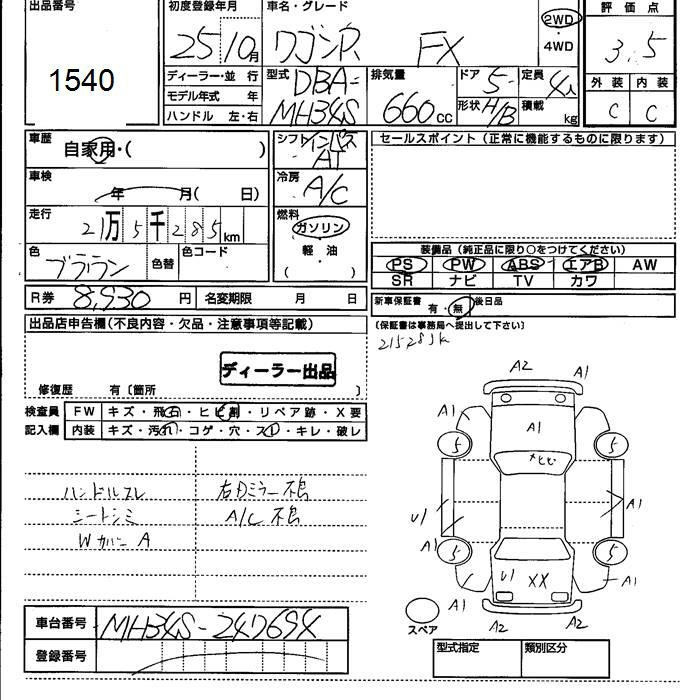 出品番号
1540
初度登録年月
25 10月
車名・グレード
ワゴンR FX
2WD
・
4WD
評価点
3.5
外装 内装
C C
ディーラー・並 行
モデル年式 年
ハンドル 左・右
型式 DBA-
MH34S
排気量
660cc
ドア 5
形状 H/B
定員 4人
積載 kg
車歴
自家用・( )
車検
年 月( 日)
走行
21万5千285km
色
ブラウン
色替
色コード
シフト インパネ
AT
冷房
A/C
燃料
ガソリン
軽・油
( )
セールスポイント (正常に機能するものに限ります)
装備品 (純正品に限り○をつけてください)
PS PW ABS エアB AW
SR ナビ TV カワ
R券 8,930 円 名変期限 月 日
新車保証書 有・無 後日品
(保証書は事務局へ提出して下さい)
出品店申告欄(不良内容・欠品・注意事項等記載)
ディーラー出品
修復歴 有〔箇所 〕
検査員
記入欄
FW キズ・飛石・ヒビ割・リペア跡・X要
内装 キズ・汚れ・コゲ・穴・スレ・キレ・破レ
ハンドルスレ
シートシミ
Wカバー A
右Dミラー不良
A/C 不良
A2 A1
A1 A1
5 5
U1 A1
A1 5 5
U1 XX A1
A1 A2
A2
スペア
車台番号 MH34S-247694
登録番号
型式指定 類別区分